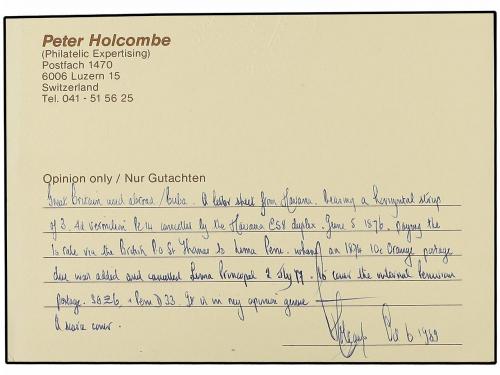 Peter Holcombe
(Philatelic Expertising)
Postfach 1470
6006 Luzern 15
Switzerland
Tel. 041 - 51 56 25
Opinion only / Nur Gutachten
Great Britain used abroad /Cuba. A letter sheet from Havana. bearing a horizontal strip
of 3. 4d vermilion Pl 14 cancelled by the Havana C58 duplex. June 5 1876. paying the
1s rate via the British P.O St Thomas to Lima Peru. where an 1874 10c Orange postage
due was added and cancelled Lima Principal 2 July 77. to cover the internal Peruvian
postage. SGZ6. + Peru D33. It is in my opinion genuine
A scarce cover.
Holcombe Oct 6 1989